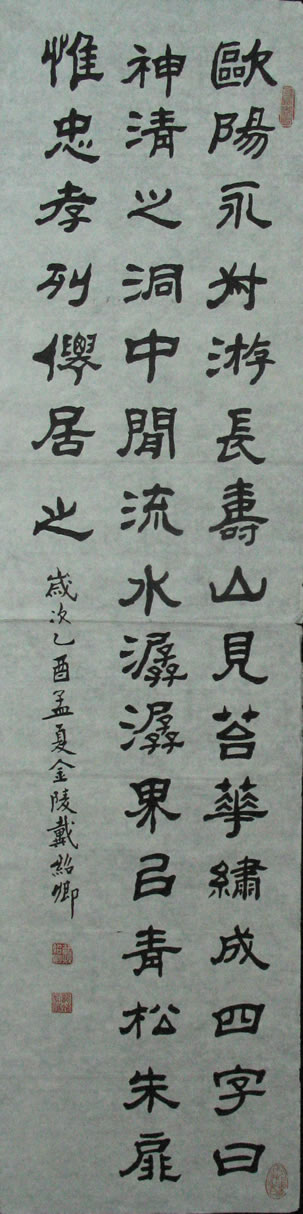 歐陽永叔游長壽山見苔華繡成四字曰
神清之洞中聞流水潺潺果㠯青松朱扉
惟忠孝列僊居之
歲次乙酉孟夏金陵戴紹卿